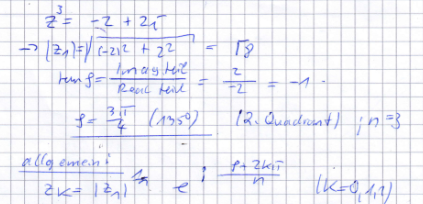 z³ = -2 + 2i
→ |z₁| = √((-2)² + 2²) = √8
tan φ = Imagteil / Realteil = 2 / -2 = -1.
φ = 3π/4 (135°) (2. Quadrant) ; n=3
allgemein:
z_K = |z₁|^(1/n) e^(i (φ+2kπ)/n) (K=0,1,2)